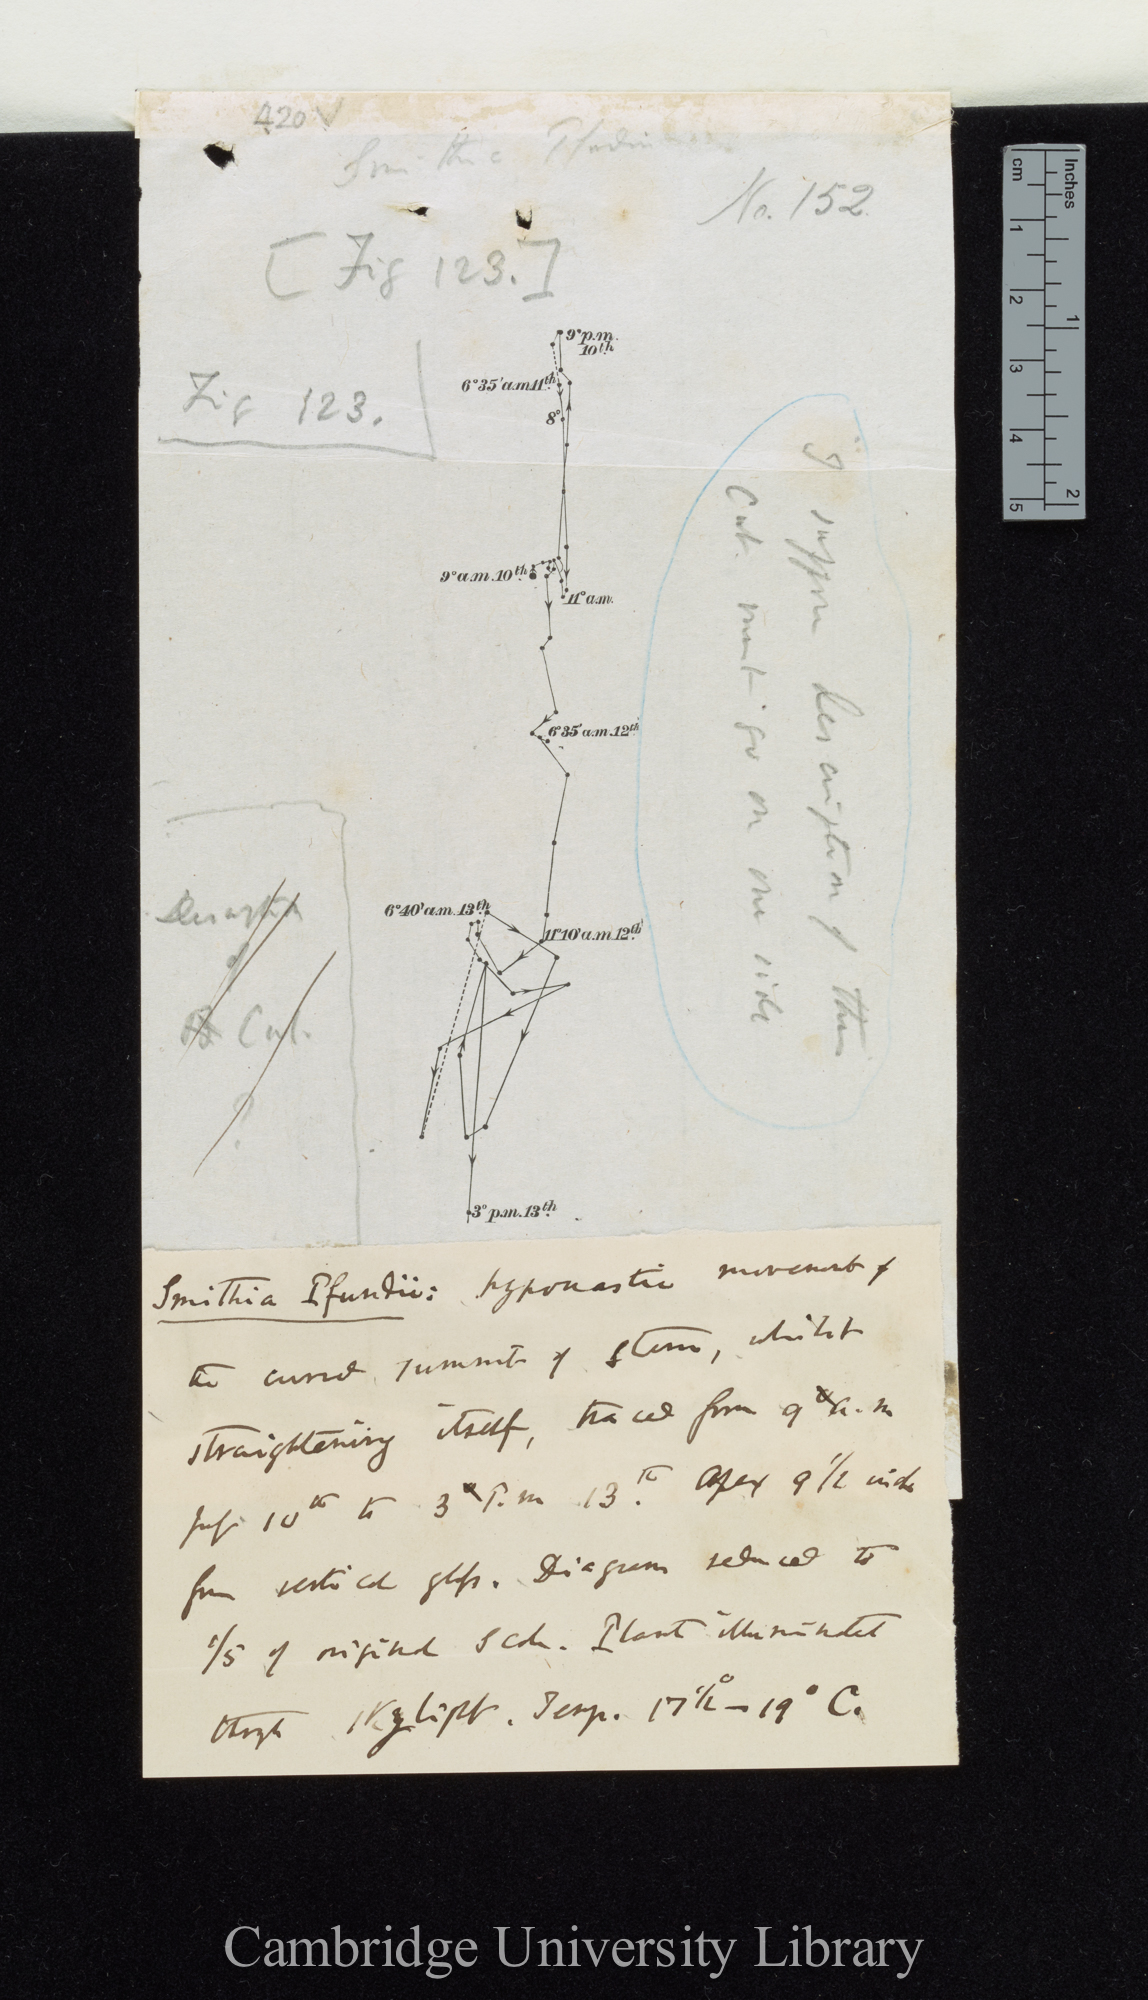 420
Smithia Pfundii
No. 152
[Fig 123.]
Fig 123.
9° p.m.
10th
6°35' a.m. 11th
8°
9° a.m. 10th
11° a.m.
6°35' a.m. 12th
6°40' a.m. 13th
11°10' a.m. 12th
3° p.m. 13th
I suppose description of this
Cut. must go on one side
Description
of
Cut.
?
Smithia Pfundii: hyponastic movement of
the curved summit of stem, whilst
straightening itself, traced from 9 a.m
July 10th to 3 P.m 13th. Apex 9 1/2 inches
from vertical glass. Diagram reduced to
1/5 of original scale. Plant illuminated
through skylight. Temp. 17 1/2° – 19° C.
cm
1
2
3
4
5
Inches
1
2
Cambridge University Library